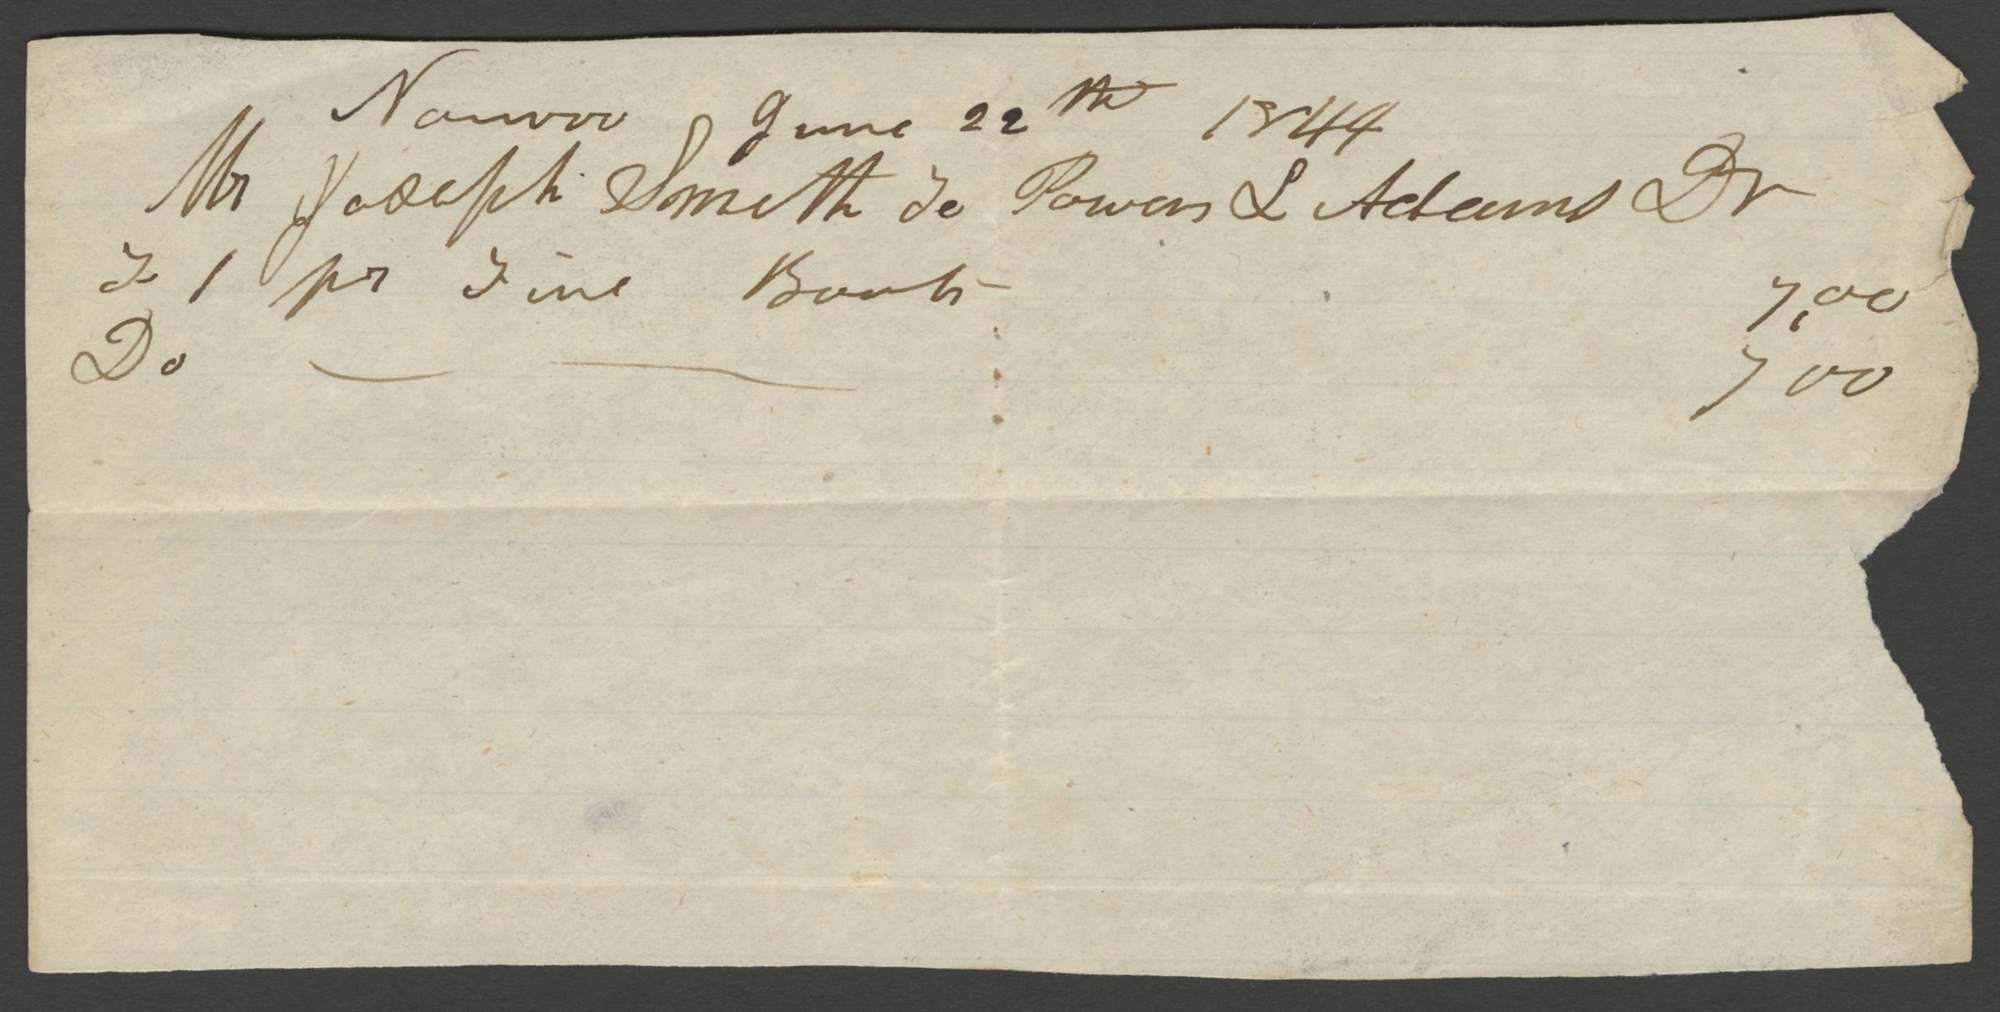 Nauvoo June 22th 1844
Mr Joseph Smith To Powers & Adams Dr
To 1 pr Fine Boots 7,00
Do 7 00